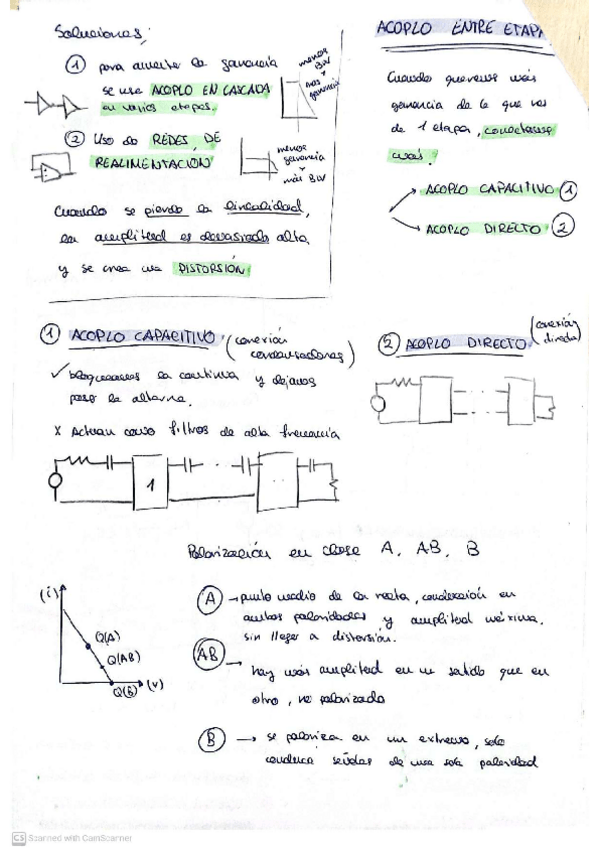 Soluciones:
① para aumentar la ganancia
se usa ACOPLO EN CASCADA
en varias etapas.
menos
BW
más
ganancia
② Uso de REDES DE
REALIMENTACIÓN
menos
ganancia
más BW
Cuando se pierde la linealidad,
la amplitud es demasiado alta
y se crea una DISTORSIÓN
ACOPLO ENTRE ETAPA
Cuando queremos más
ganancia de la que nos
da 1 etapa, conectamos
más:
ACOPLO CAPACITIVO ①
ACOPLO DIRECTO ②
① ACOPLO CAPACITIVO (conexión
condensadores)
✓ bloqueamos la continua y dejamos
paso la alterna.
x Actúan como filtros de alta frecuencia
1
② ACOPLO DIRECTO (conexión
directa)
Polarización en clase A, AB, B
(i)
Q(A)
Q(AB)
Q(B)
(v)
Ⓐ → punto medio de la recta, conducción en
ambas polaridades y amplitud máxima.
sin llegar a distorsión.
AB → hay más amplitud en un sentido que en
otro, no polarizado
Ⓑ → se polariza en un extremo, solo
conduce señales de una sola polaridad
CS Scanned with CamScanner